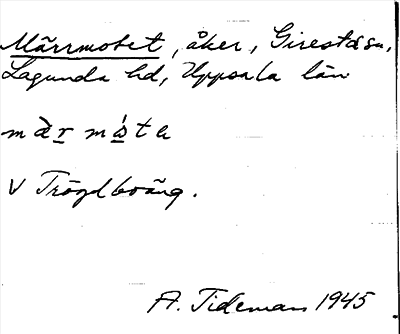 Märrmotet, åker, Giresta sn,
Lagunda hd, Uppsala län
màr mó̱te
V Trögdboäng.
A. Tideman 1945